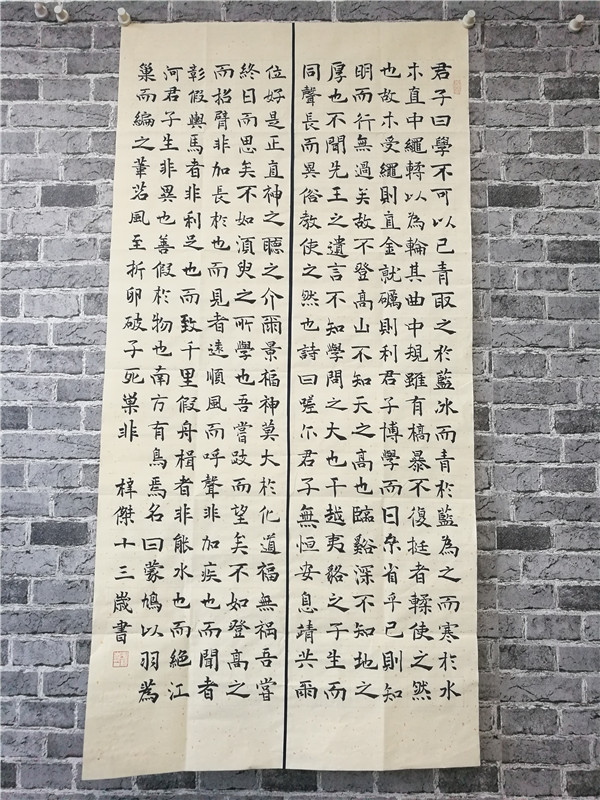 君子曰學不可以已青取之於藍冰而青於藍為之而寒於水
木直中繩輮以為輪其曲中規雖有槁暴不復挺者輮使之然
也故木受繩則直金就礪則利君子博學而日參省乎己則知
明而行無過矣故不登高山不知天之高也臨谿深不知地之
厚也不聞先王之遺言不知學問之大也干越夷貉之子生而
同聲長而異俗教使之然也詩曰嗟尒君子無恒安息靖共爾
位好是正直神之聽之介爾景福神莫大於化道福無禍吾嘗
終日而思矣不如湏臾之所學也吾嘗跂而望矣不如登高之
而招臂非加長於也而見者遠順風而呼聲非加疾也而聞者
彰假輿馬者非利足也而致千里假舟楫者非能水也而絕江
河君子生非異也善假於物也南方有鳥焉名曰蒙鳩以羽為
巢而編之葦苕風至折卵破子死巢非
梓傑十三歲書